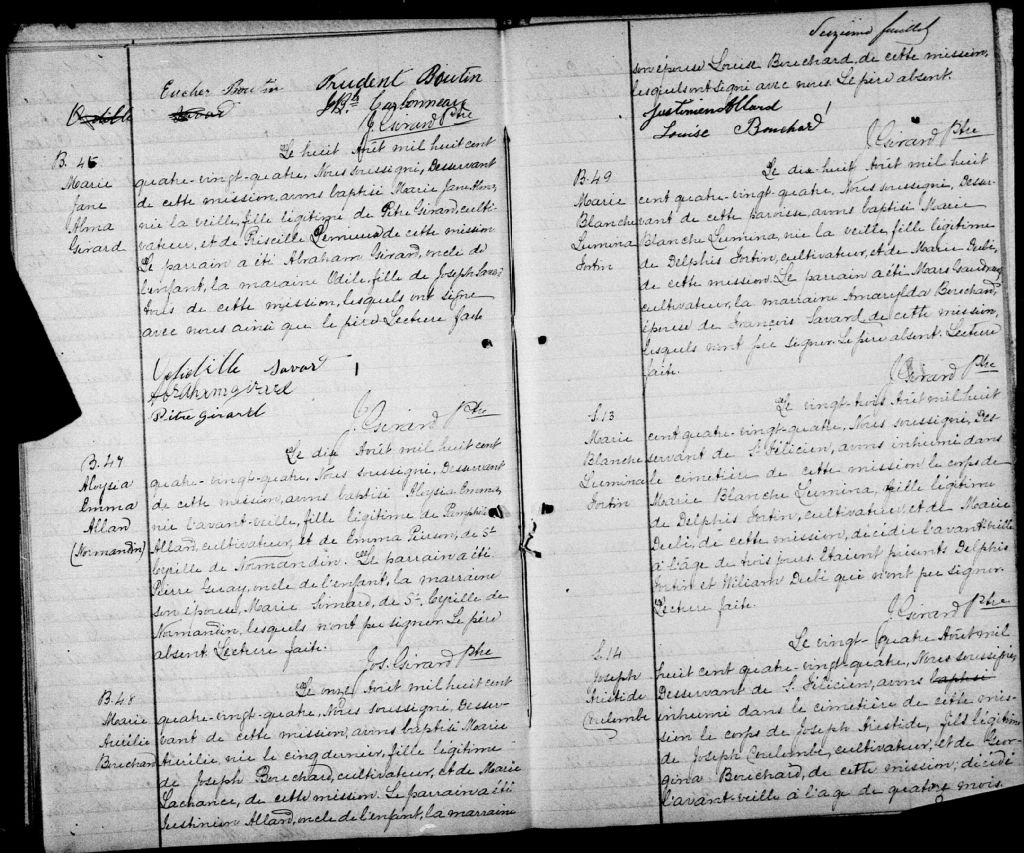 Eucher Boutin Prudent Boutin
Odille Savard J.Bte Carbonneau
J. Girard Ptre
B. 46
Marie
Jane
Alma
Girard
Le huit Août mil huit cent
quatre-vingt-quatre, Nous soussigné, Desservant
de cette mission, avons baptisé Marie Jane Alma,
née la veille, fille légitime de Pitre Girard, culti-
vateur, et de Priscille Lemieux de cette mission
Le parrain a été Abraham Girard, oncle de
l'enfant, la maraine Odile, fille de Joseph
de cette mission, lesquels ont signé
avec nous ainsi que le père Lecture faite
savar
Pitre Girard
J. Girard Ptre
B. 47
Aloysia
Emma
Allard
(Normandin)
Le dix Août mil huit cent
quatre-vingt-quatre, Nous soussigné, Desservant
de cette mission, avons baptisé Aloysia Emma,
née l'avant-veille, fille légitime de
Allard, cultivateur, et de Emma de St
Cyrille de Normandin. Le parrain a été
Pierre Guay, oncle de l'enfant, la marraine
son épouse, Marie Simard, de St Cyrille de
Normandin, lesquels n'ont pu signer. Le père
absent. Lecture faite.
Jos. Girard Ptre
B. 48
Marie
Aurélie
Bouchard
Le onze Août mil huit cent
quatre-vingt-quatre, Nous soussigné, Desser-
vant de cette mission, avons baptisé Marie
Aurélie, née le cinq dernier, fille légitime
de Joseph Bouchard, cultivateur, et de Marie
Lachance, de cette mission. Le parrain a été
Justinien Allard, oncle de l'enfant, la marraine
Seizième feuillet
son épouse Louise Bouchard, de cette mission,
lesquels ont signé avec nous. Le père absent.
Justinien Allard
Louise Bouchard
J. Girard Ptre
B. 49
Marie
Blanche
Lumina
Fortin
Le dix huit Août mil huit
cent quatre-vingt-quatre, Nous soussigné, Desser-
vant de cette paroisse, avons baptisé Marie
Blanche Lumina, née la veille, fille légitime
de Delphis Fortin, cultivateur, et de Marie Dubé,
de cette mission. Le parrain a été Mars Gaudreau,
cultivateur, la marraine Amarylda Bouchard,
épouse de François Savard, de cette mission,
lesquels n'ont pu signer. Le père absent. Lecture
faite.
J. Girard Ptre
S. 13
Marie
Blanche
Lumina
Fortin
Le vingt-trois Août mil huit
cent quatre-vingt-quatre, Nous soussigné, Des-
servant de St. Félicien, avons inhumé dans
le cimetière de cette mission le corps de
Marie Blanche Lumina, fille légitime
de Delphis Fortin, cultivateur, et de Marie
Dubé, de cette mission, décédée l'avant-veille
à l'âge de trois jours. Etaient présents Delphis
Fortin et William Dubé qui n'ont pu signer
Lecture faite.
J. Girard Ptre
S. 14
Joseph
Aristide
Coulombe
Le vingt-quatre Août mil
huit cent quatre-vingt-quatre, Nous soussigné,
Desservant de St. Félicien, avons baptisé
inhumé dans le cimetière de cette mis-
sion le corps de Joseph Aristide, fils légitime
de Joseph Coulombe, cultivateur, et de Geor-
gina Bouchard, de cette mission, décédé
l'avant-veille à l'âge de quatorze mois.